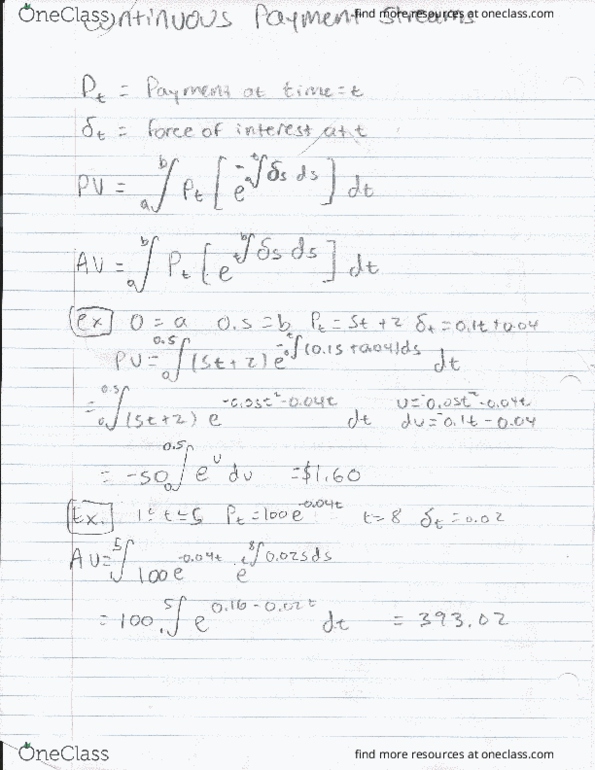 OneClass find more resources at oneclass.com
Continuous Payment Streams
Pt = Payment at time = t
δt = force of interest at t
PV = a∫b Pt [e^-a∫t δs ds] dt
AV = a∫b Pt [e^t∫b δs ds] dt
ex 0 = a 0.5 = b Pt = 5t + 2 δt = 0.1t + 0.04
PV = 0∫0.5 (5t + 2) e^-0∫t (0.1s + 0.04)ds dt
= 0∫0.5 (5t + 2) e^-0.05t²-0.04t dt u = -0.05t²-0.04t
du = -0.1t - 0.04
= -50 0∫0.5 e^u du = $1.60
Ex. 1≤t≤5 Pt = 100e^-0.04t t = 8 δt = 0.02
AV = ∫5 100e^-0.04t . e^t∫8 0.02sds
= 100 1∫5 e^0.16-0.02t dt = 393.02
OneClass find more resources at oneclass.com